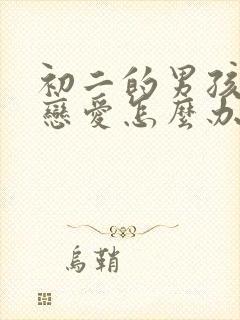 初二的男孩
戀愛怎麼办
烏鞘